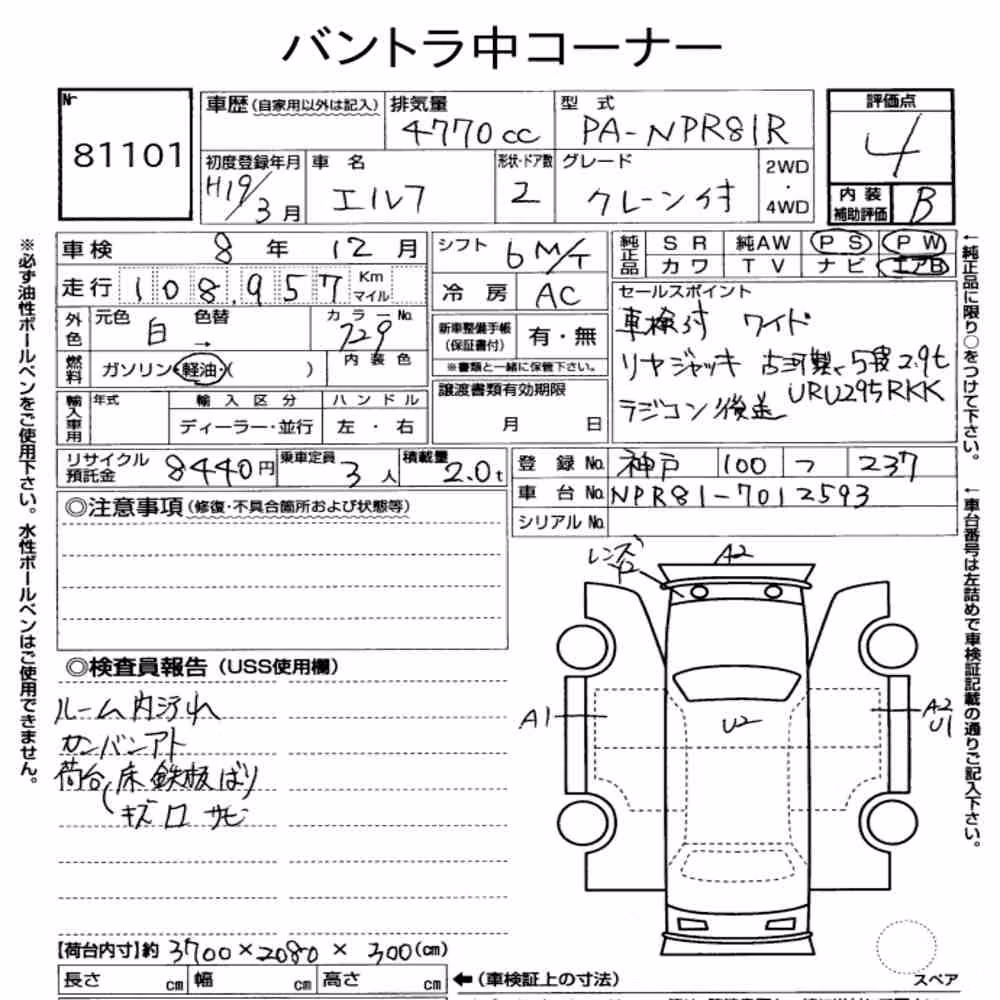 バントラ中コーナー
Nr 81101
車歴(自家用以外は記入) 排気量 4770cc 型式 PA-NPR81R
評価点 4
初度登録年月 H19/3月 車名 エルフ 形状・ドア数 2 グレード クレーン付 2WD・4WD
内装補助評価 B
車検 8年 12月 シフト 6 M/T
純正品 SR 純AW PS PW
カワ TV ナビ エアB
走行 108,957 Km マイル
冷房 AC
セールスポイント
車検付 ワイド
リヤジャッキ 古河製、5段2.9t
URU295RKK
ラジコン 後送
外色 元色 白 色替 → カラーNo. 729
新車整備手帳(保証書付) 有・無
※書類と一緒に保管下さい。
燃料 ガソリン・軽油・( ) 内装色
譲渡書類有効期限
月 日
輸入車用 年式 輸入区分 ハンドル
ディーラー・並行 左・右
リサイクル預託金 8440円 乗車定員 3人 積載量 2.0t
登録No. 神戸 100 つ 237
車台No. NPR81-7012593
シリアルNo.
◎注意事項(修復・不具合箇所および状態等)
レンズ
A2
◎検査員報告(USS使用欄)
ルーム内汚れ
カンバンアト
荷台(床鉄板ばり
キズ ロ サビ
A1
U2
A2
U1
【荷台内寸】約 3700×2080×300(cm)
長さ cm 幅 cm 高さ cm ←(車検証上の寸法)
スペア
※必ず油性ボールペンをご使用下さい。水性ボールペンはご使用できません。
←純正品に限り○をつけて下さい。
←車台番号は左詰めで車検証記載の通りご記入下さい。